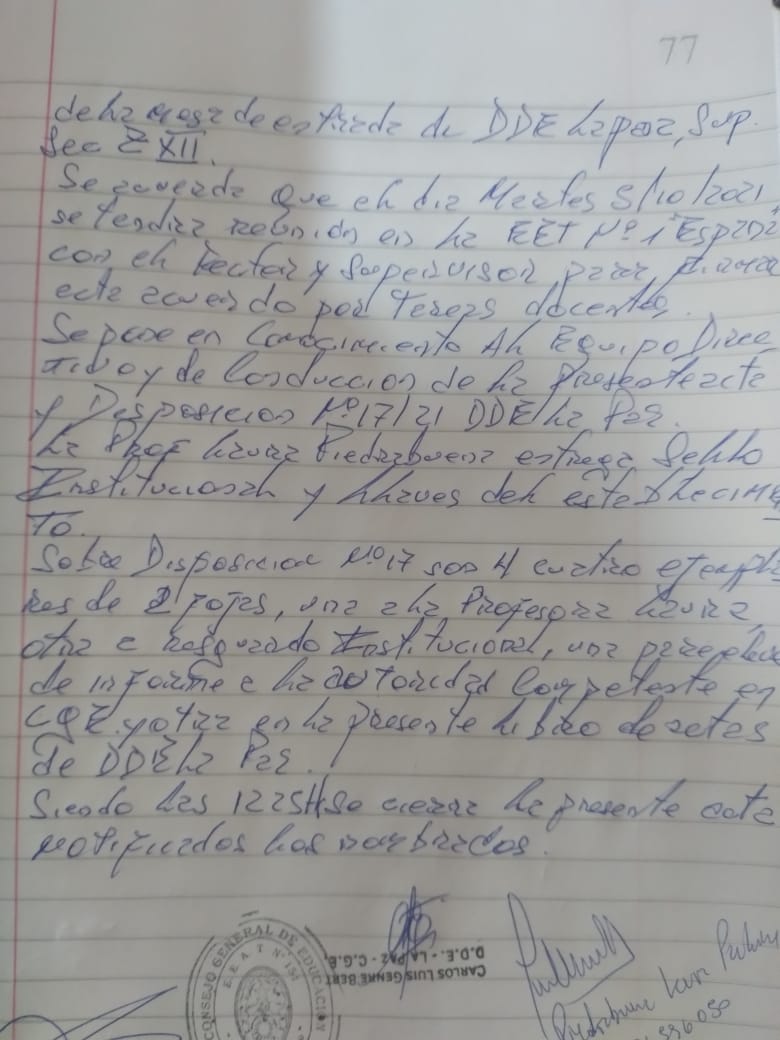 77
de la mesa de entrada de DDE La paz, Sup.
Sec Z XII.
Se acuerda que el dia Martes 5/10/2021,
se tendra reunión en la EET Nº 1 "España
con el Rector y Supervisor para
este acuerdo por Tareas docentes.
Se pone en Conocimiento Al Equipo Direc
tivo y de Conduccion de la Presente acta
y Disposicion Nº 17/21 DDE La Paz.
La Prof Laura Piedrabuena entrega Sello
Institucional y llaves del establecimien
TO.
Sobre Disposicion Nº 17 son 4 cuatro ejempla
res de 2 fojas, una a la Profesora Laura,
otra a resguardo Institucional, una para
de informe a la autoridad Competente en
CGE y otra en la presente Libro de actas
de DDE La Paz.
Siendo las 1225Hs se cierra la presente acta
notificados los nombrados.
CONSEJO GENERAL DE EDUCACION
CARLOS LUIS GENRE BERT
D.D.E. - LA PAZ - C.G.E.
Piedrabuena Laura